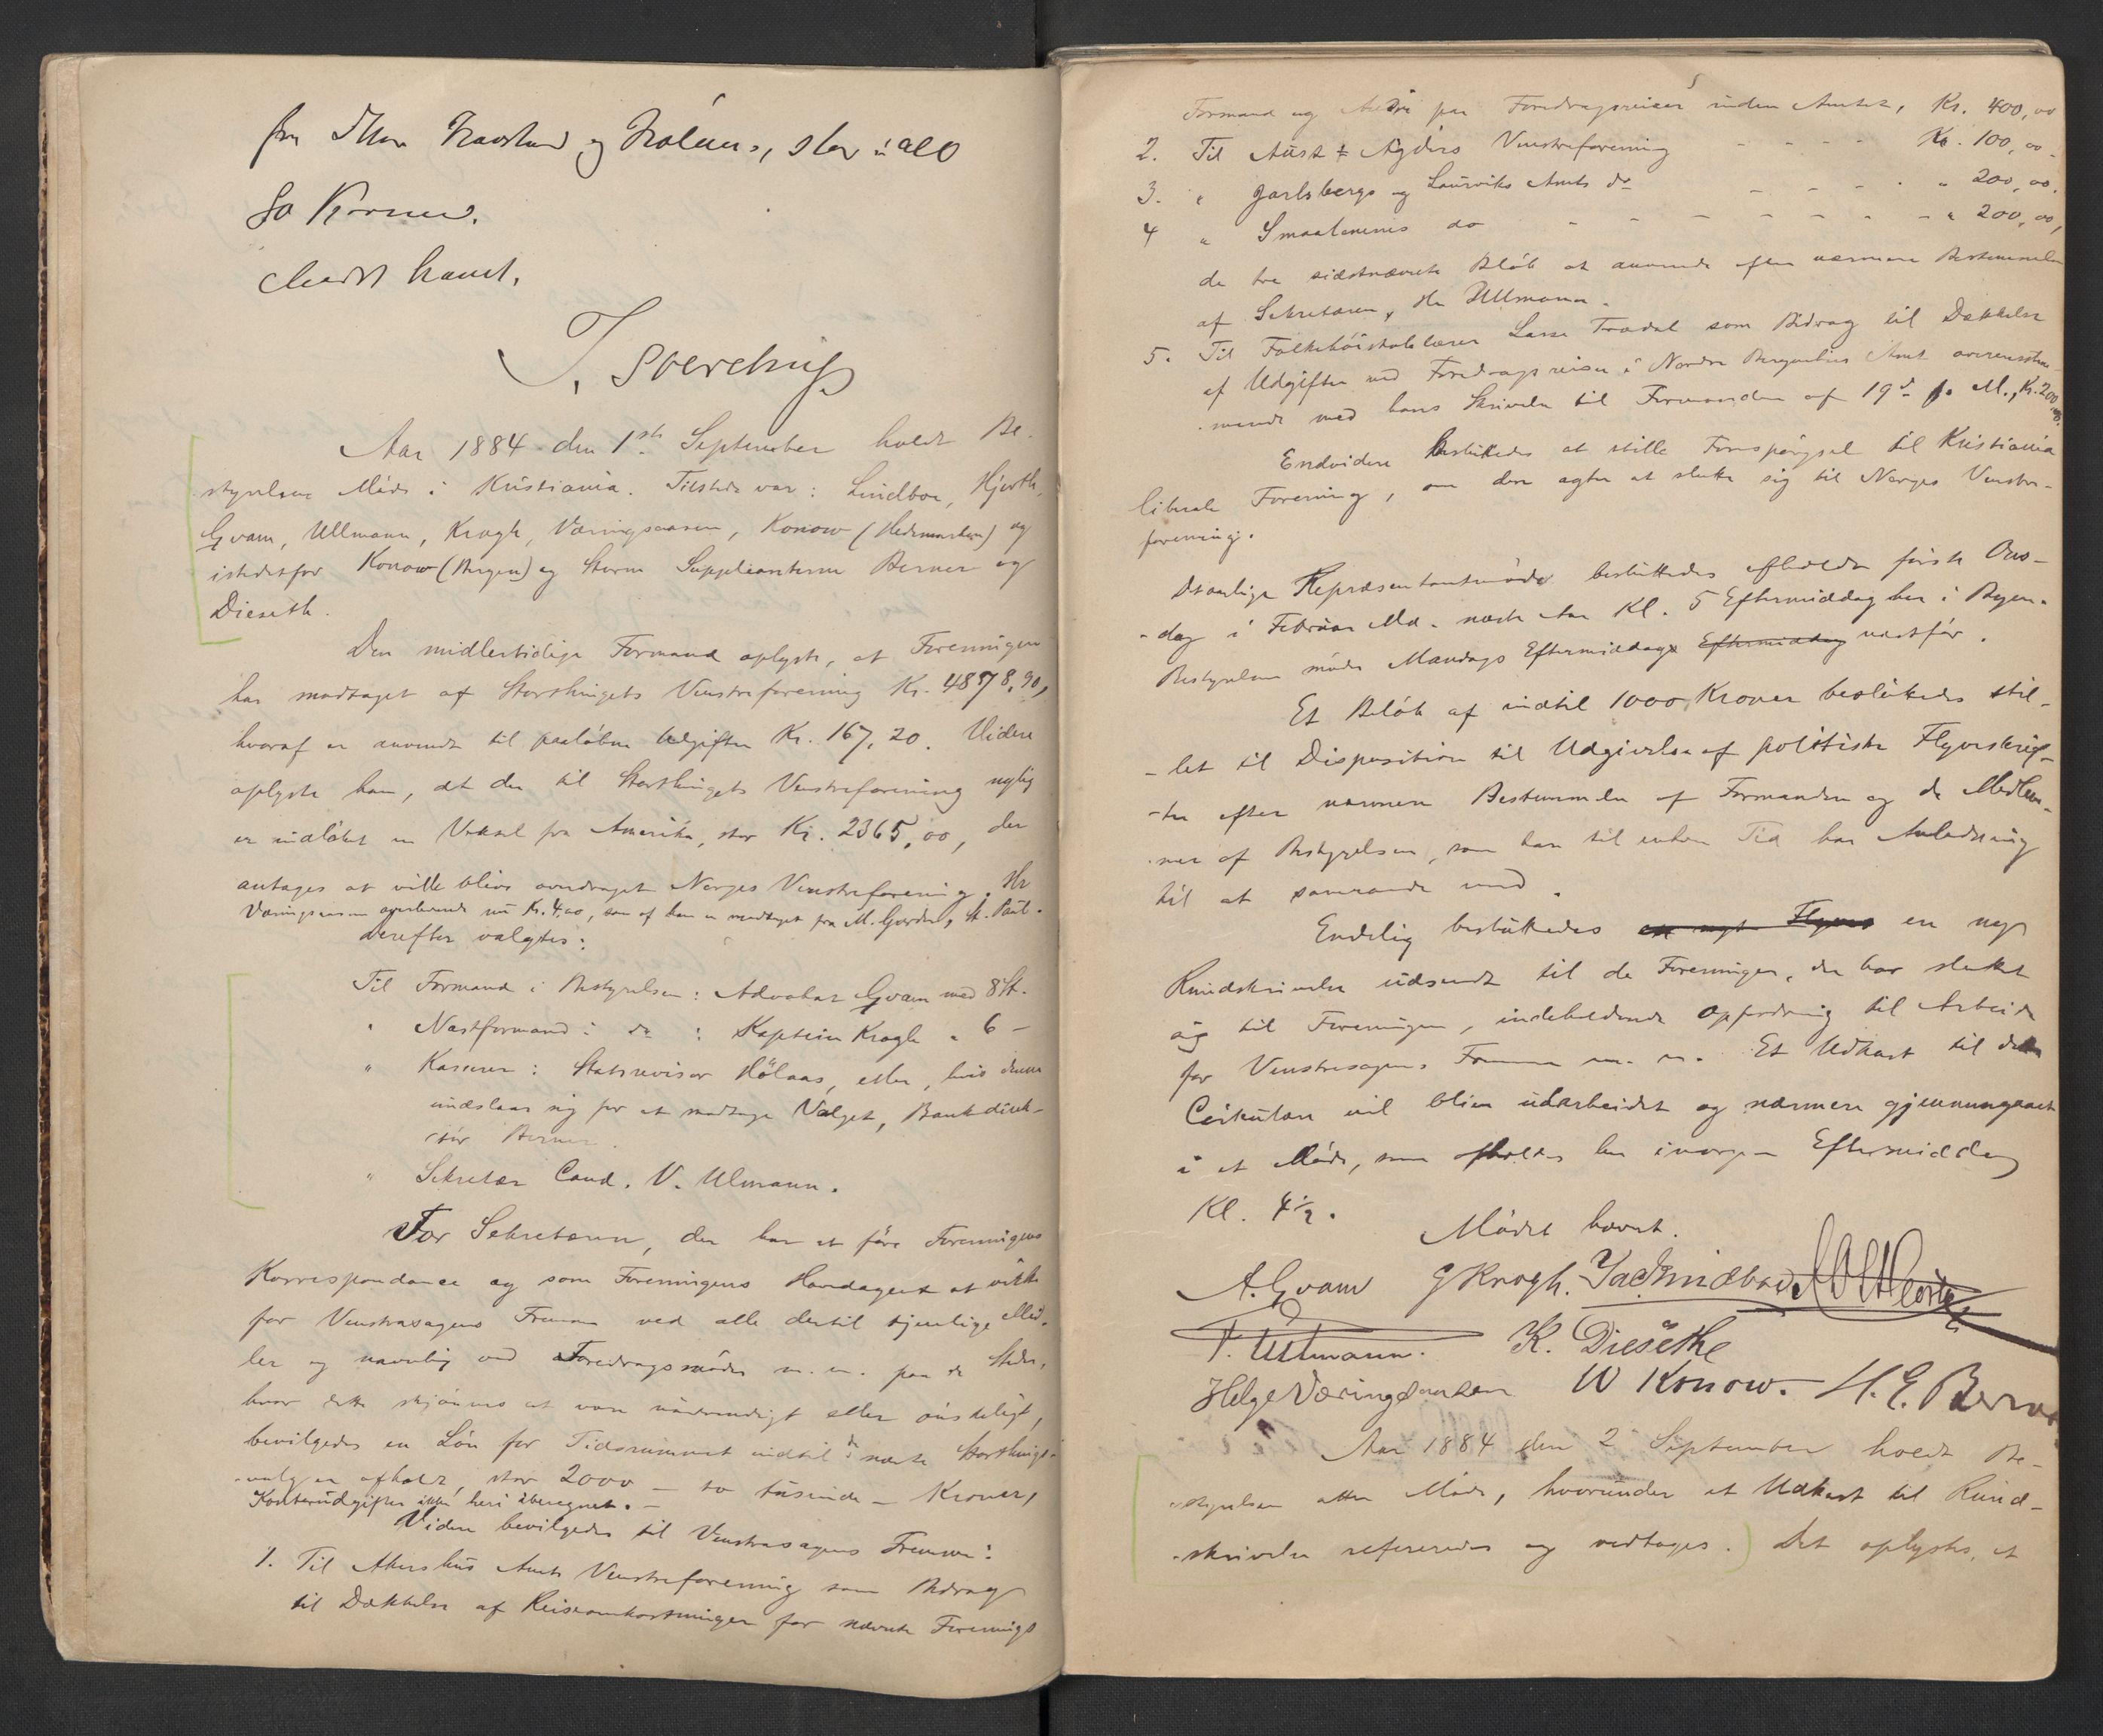 fra Thor Naastad og Holaas, stor i alt
80 Kroner.
Mødet hævet.
J. Sverdrup
Aar 1884 den 1ste September holdt Be-
styrelsen Møde i Kristiania. Tilstede var: Lindboe, Hjorth,
Qvam, Ullmann, Krogh, Væringsaasen, Konow (Hedemarken) og
istedetfor Konow (Bergen) og Storm Suppleanterne Berner og
Dieseth.
Den midlertidige Formand oplyste, at Foreningen
har modtaget af Storthingets Venstreforening Kr. 4878,90,
hvoraf er anvendt til paaløbne Udgifter Kr. 167,20. Videre
oplyste han, at der til Storthingets Venstreforening nylig
er indløbet en Veksel fra Amerika, stor Kr. 2365,00, der
antages at ville blive overdraget Norges Venstreforening. Hr
Væringsaasen overleverede nu Kr. 4,00, som af ham er modtaget fra M. Gjerdre, St. Paul.
Derefter valgtes:
Til Formand i Bestyrelsen: Advokat Qvam med 8 St.
" Næstformand i do : Kaptein Krogh " 6 –
" Kasserer: Statsrevisor Hölaas, eller, hvis denne
undslaar sig for at modtage Valget, Bankdirek-
tør Berner.
" Sekretær Cand. V. Ulmann.
For Sekretæren, der har at føre Foreningens
Korrespondance og som Foreningens Hovedagent at virke
for Venstresagens Fremme ved alle dertil tjenlige Mid-
ler og navnlig ved Foredragsmøder m. m. paa de Steder,
hvor dette skjønnes at være nødvendigt eller ønskeligt,
bevilgedes en Løn for Tidsrummet indtil de næste Storthings-
valg er afholdt, stor 2000 – to tusinde – Kroner,
Kontorudgifter ikke heri iberegnet. –
Videre bevilgedes til Venstresagens Fremme:
1. Til Akershus Amts Venstreforening som Bidrag
til Dækkelse af Reiseomkostninger for nævnte Forenings
Formand og Andre paa Foredragsreiser inden Amtet, Kr. 400,00
2. Til Aust-Agders Venstreforening - - - - Kr. 100,00.
3. " Jarlsbergs og Laurviks Amts do - - - - " 200,00.
4 " Smaalenenes do - - - - - - - " 200,00,
de tre sidstnævnte Beløb at anvende efter nærmere Bestemmelse
af Sekretæren, Hr Ullmann.
5. Til Folkehøiskolelærer Lasse Trædal som Bidrag til Dækkelse
af Udgifter ved Foredragsreiser i Nordre Bergenhus Amt overensstem-
mende med hans Skrivelse til Formanden af 19de f. M., Kr. 200,00.
Endvidere besluttedes at stille Forespørgsel til Kristiania
liberale Forening, om den agter at slutte sig til Norges Venstre-
forening.
Det aarlige Repræsentantmøde besluttedes afholdt første Ons-
-dag i Februar Md. næste Aar Kl. 5 Eftermiddag her i Byen.
Bestyrelsen møder Mandags Eftermiddag Eftermiddag næstfør.
Et Beløb af indtil 1000 Kroner besluttedes stil-
-let til Disposition til Udgivelse af politiske Flyveskrif-
-ter efter nærmere Bestemmelse af Formanden og de Medlem-
mer af Bestyrelsen, som han til enhver Tid har Anledning
til at samraade med.
Endelig besluttedes et nyt Flyves en ny
Rundskrivelse udsendt til de Foreninger, der har sluttet
sig til Foreningen, indeholdende Opfordring til Arbeide
for Venstresagens Fremme m. m. Et Udkast til dette
Cirkulære vil blive udarbeidet og nærmere gjennemgaaet
i et Møde, som afholdes her imorgen Eftermiddag
Kl. 4½.
Mødet hævet.
A. Qvam G Krogh. Jac Lindboe Hjorth
V. Ullmann. K. Dieseth
Helge Væringsaasen W Konow. H. E. Berner
Aar 1884 den 2 September holdt Be-
styrelsen atter Møde, hvorunder et Udkast til Rund-
-skrivelse refereredes og vedtoges. Det oplystes, at